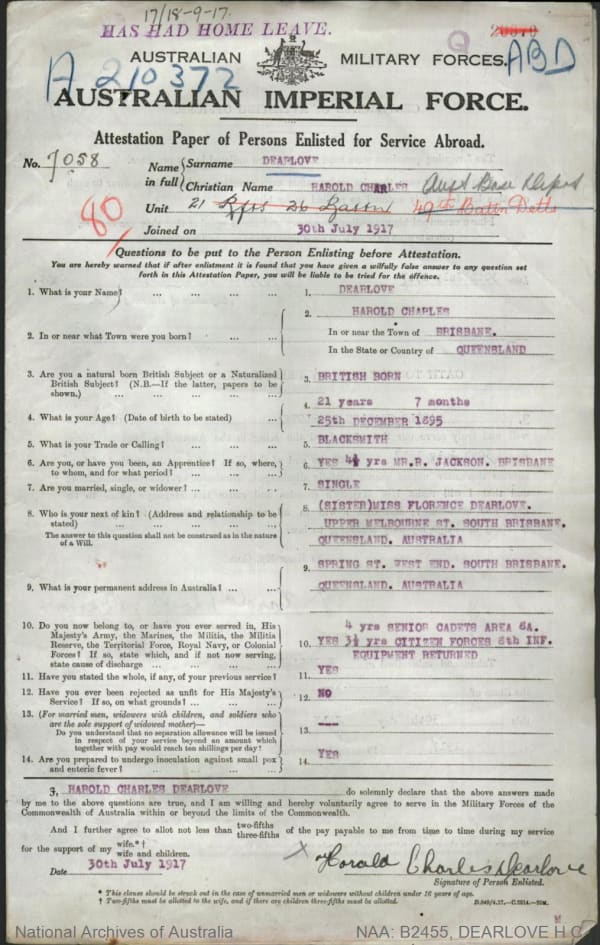 17/18-9-17.
HAS HAD HOME LEAVE.
Q
A 210372
ABD
AUSTRALIAN MILITARY FORCES.
AUSTRALIAN IMPERIAL FORCE.
Attestation Paper of Persons Enlisted for Service Abroad.
No. 7058
Name in full { Surname DEARLOVE
Christian Name HAROLD CHARLES Aust Base Depot
Unit 21 Rfts 26 Battn 49th Battn Detts
80
Joined on 30th July 1917
Questions to be put to the Person Enlisting before Attestation.
You are hereby warned that if after enlistment it is found that you have given a wilfully false answer to any question set
forth in this Attestation Paper, you will be liable to be tried for the offence.
1. What is your Name? ... ... ... 1. DEARLOVE
2. HAROLD CHARLES
2. In or near what Town were you born? ... ... In or near the Town of BRISBANE.
In the State or Country of QUEENSLAND
3. Are you a natural born British Subject or a Naturalized
British Subject? (N.B.—If the latter, papers to be
shown.) ... ... ... ... ... 3. BRITISH BORN
4. What is your Age? (Date of birth to be stated) ... 4. 21 years 7 months
25th DECEMBER 1895
5. What is your Trade or Calling? ... ... ... 5. BLACKSMITH
6. Are you, or have you been, an Apprentice? If so, where,
to whom, and for what period? ... ... ... 6. YES 4½ yrs MR.R. JACKSON. BRISBANE
7. Are you married, single, or widower? ... ... 7. SINGLE
8. Who is your next of kin? (Address and relationship to be
stated) ... ... ... ... ... 8. (SISTER)MISS FLORENCE DEARLOVE.
UPPER MELBOURNE ST. SOUTH BRISBANE.
The answer to this question shall not be construed as in the nature
of a Will. QUEENSLAND. AUSTRALIA
9. What is your permanent address in Australia? ... ... 9. SPRING ST. WEST END. SOUTH BRISBANE.
QUEENSLAND. AUSTRALIA
10. Do you now belong to, or have you ever served in, His
Majesty's Army, the Marines, the Militia, the Militia
Reserve, the Territorial Force, Royal Navy, or Colonial
Forces? If so, state which, and if not now serving,
state cause of discharge ... ... ... ...
4 yrs SENIOR CADETS AREA 8A.
10. YES 3½ yrs CITIZEN FORCES 8th INF.
EQUIPMENT RETURNED
11. Have you stated the whole, if any, of your previous service? 11. YES
12. Have you ever been rejected as unfit for His Majesty's
Service? If so, on what grounds? ... ... ... 12. NO
13. (For married men, widowers with children, and soldiers who
are the sole support of widowed mother)—
Do you understand that no separation allowance will be issued
in respect of your service beyond an amount which
together with pay would reach ten shillings per day? 13. ---
14. Are you prepared to undergo inoculation against small pox
and enteric fever? ... ... ... ... 14. YES
I, HAROLD CHARLES DEARLOVE do solemnly declare that the above answers made
by me to the above questions are true, and I am willing and hereby voluntarily agree to serve in the Military Forces of the
Commonwealth of Australia within or beyond the limits of the Commonwealth.
And I further agree to allot not less than two-fifths three-fifths of the pay payable to me from time to time during my service
for the support of my wife.*† wife and children.
Date 30th July 1917
X Harold Charles Dearlove
Signature of Person Enlisted.
* This clause should be struck out in the case of unmarried men or widowers without children under 16 years of age.
† Two-fifths must be allotted to the wife, and if there are children three-fifths must be allotted.
National Archives of Australia
NAA: B2455, DEARLOVE H C